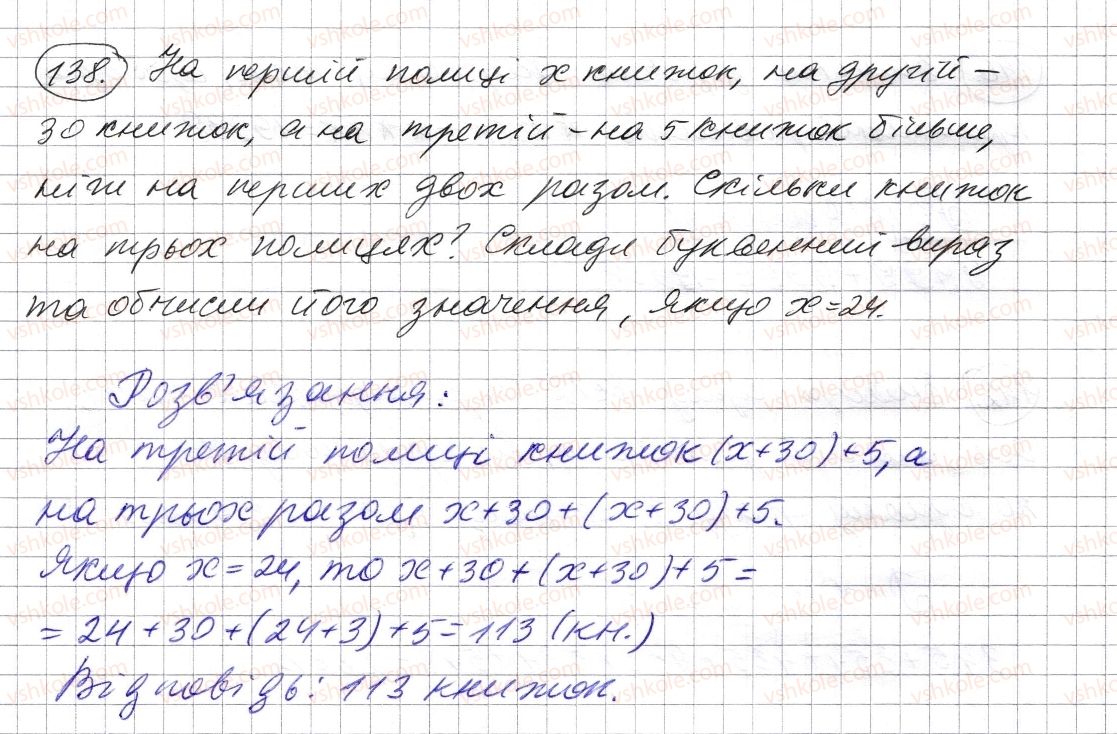 138. На першій полиці x книжок, на другій –
30 книжок, а на третій – на 5 книжок більше,
ніж на перших двох разом. Скільки книжок
на трьох полицях? Склади буквенний вираз
та обчисли його значення, якщо x=24.
Розв'язання:
На третій полиці книжок (x+30)+5, а
на трьох разом x+30+(x+30)+5.
Якщо x=24, то x+30+(x+30)+5=
=24+30+(24+3)+5=113 (кн.)
Відповідь: 113 книжок.